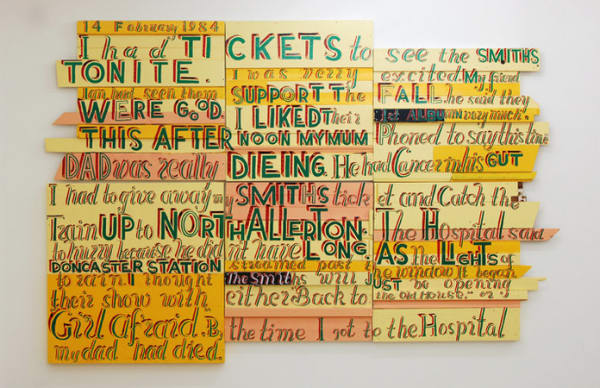 14 February 1984
I had TICKETS to see the SMITHS
TONITE. I was verry excited. My friend
Ian had seen them SUPPORT The FALL. he said they
WERE GOOD. I LIKED Their 1st ALBUM very much.
THIS AFTERNOON MY MUM Phoned to say this time
DAD was really DIEING. He had Cancer in his GUT
I had to give away my SMITHS ticket and Catch the
Train UP to NORTHALLERTON. The Hospital said
to hurry because he didn't have LONG. AS the LIGHTS of
DONCASTER STATION streamed past the window It began
to rain. I thought The Smiths will JUST be opening
their show with either Back to the Old House," or
Girl Afraid. By the time I got to the Hospital
my dad had died.